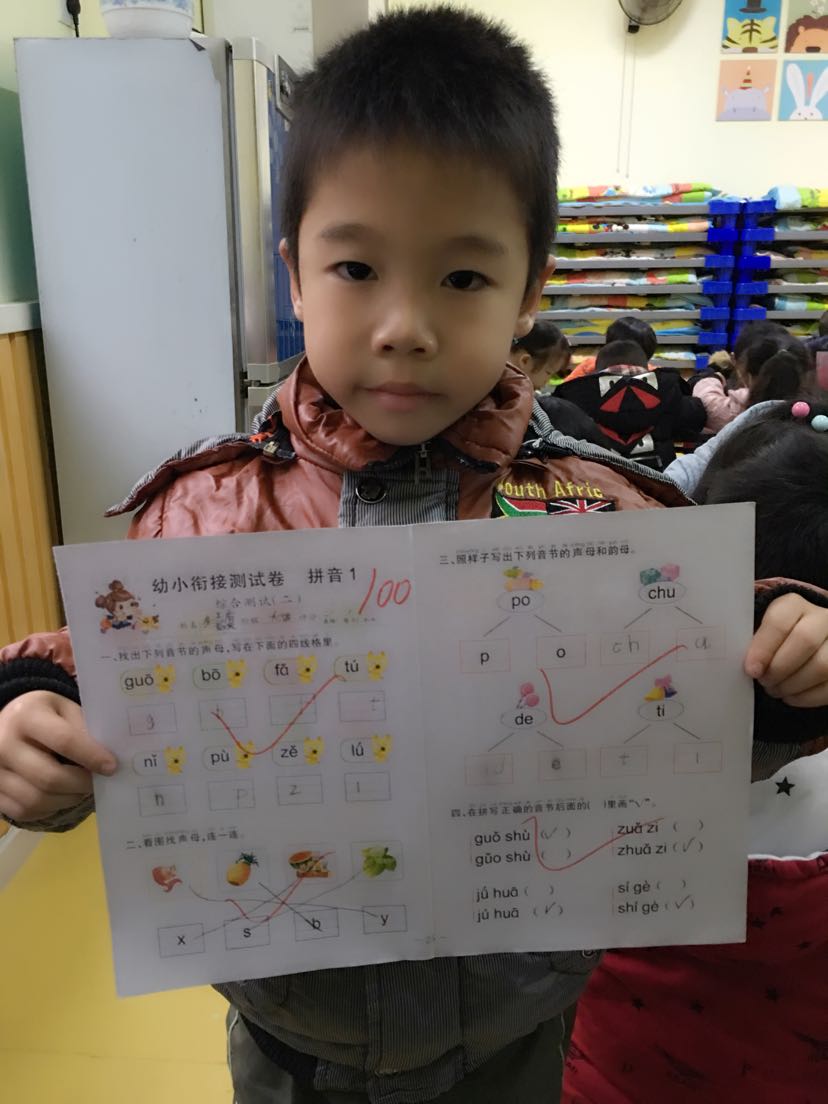 South Afric
幼小衔接测试卷 拼音1
100
综合测试(二)
一、找出下列音节的声母,写在下面的四线格里。
guō bō fā tú
g t
nǐ pù zě lú
n p z l
二、看图找声母,连一连。
x s b y
三、照样子写出下列音节的声母和韵母。
po chu
p o ch
de ti
e t i
四、在拼写正确的音节后面的( )里画“√”。
guǒ shù (√) zuǎ zi ( )
gǔo shù ( ) zhuǎ zi (√)
jǘ huā ( ) sí gè ( )
jú huā (√) shí gè (√)